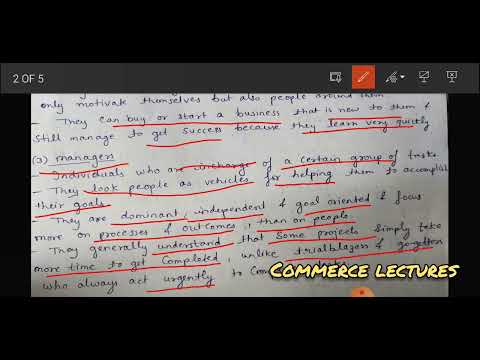 2 OF 5
only motivate themselves but also people around them
- They can buy or start a business that is new to them &
still manage to get success because they learn very quickly
(3) managers
- Individuals who are incharge of a certain group of tasks.
- They look people as vehicles for helping them to accomplish
their goals
- They are dominant, independent & goal oriented & focus
more on processes & outcomes, than on people.
- They generally understand that some projects simply take
more time to get completed, unlike trialblazers & gogetters
who always act urgently to
COMMERCE LECTURES